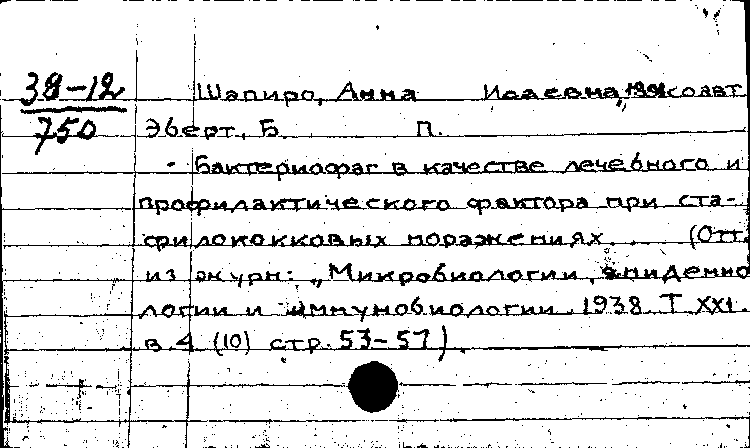 38-12 Шапиро, Анна Исаевна, соавт
750 Эберт, Б. П.
- Бактериофаг в качестве лечебного и
профилактического фактора при ста-
филококковых поражениях. (Отт.
из журн: "Микробиологии, эпидемио
логии и иммунобиологии. 1938. Т XXI.
в. 4 (10) стр. 53-57).